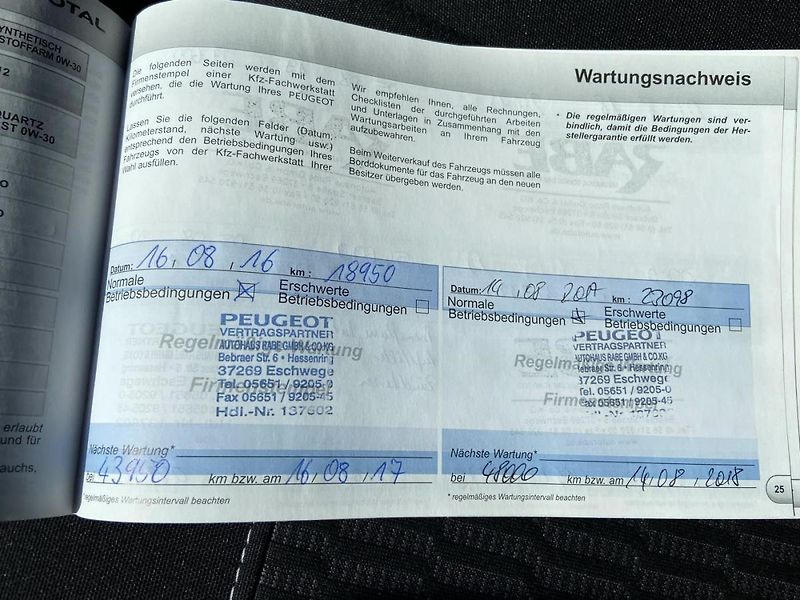 TOTAL
SYNTHETISCH
STOFFARM 0W-30
12
QUARTZ
ST 0W-30
erlaubt
und für
auchs,
Wartungsnachweis
Die folgenden Seiten werden mit dem
Firmenstempel einer Kfz-Fachwerkstatt
versehen, die die Wartung Ihres PEUGEOT
durchführt.
Lassen Sie die folgenden Felder (Datum,
Kilometerstand, nächste Wartung usw.)
entsprechend den Betriebsbedingungen Ihres
Fahrzeugs von der Kfz-Fachwerkstatt Ihrer
Wahl ausfüllen.
Wir empfehlen Ihnen, alle Rechnungen,
Checklisten der durchgeführten Arbeiten
und Unterlagen in Zusammenhang mit den
Wartungsarbeiten an Ihrem Fahrzeug
aufzubewahren.
Beim Weiterverkauf des Fahrzeugs müssen alle
Borddokumente für das Fahrzeug an den neuen
Besitzer übergeben werden.
* Die regelmäßigen Wartungen sind ver-
bindlich, damit die Bedingungen der Her-
stellergarantie erfüllt werden.
Datum: 16, 08, 16 km: 18950
Normale
Betriebsbedingungen
Erschwerte
Betriebsbedingungen
PEUGEOT
VERTRAGSPARTNER
AUTOHAUS RABE GMBH & CO.KG
Regelmäßige Wartung
Bebraer Str. 6 • Hessenring
37269 Eschwege
Tel. 05651 / 9205-0
Fax 05651 / 9205-45
Hdl.-Nr. 137602
Nächste Wartung*
bei 43950 km bzw. am 16, 08, 17
*regelmäßiges Wartungsintervall beachten
Datum: 14, 08 km: 27098
Normale
Betriebsbedingungen
Erschwerte
Betriebsbedingungen
PEUGEOT
VERTRAGSPARTNER
AUTOHAUS RABE GMBH & CO.KG
Regelmäßige Wartung
Bebraer Str. 6 • Hessenring
37269 Eschwege
Tel. 05651 / 9205-0
Fax 05651 / 9205-45
Hdl.-Nr. 137602
Nächste Wartung*
bei 48000 km bzw. am 14, 08, 2018
* regelmäßiges Wartungsintervall beachten
25